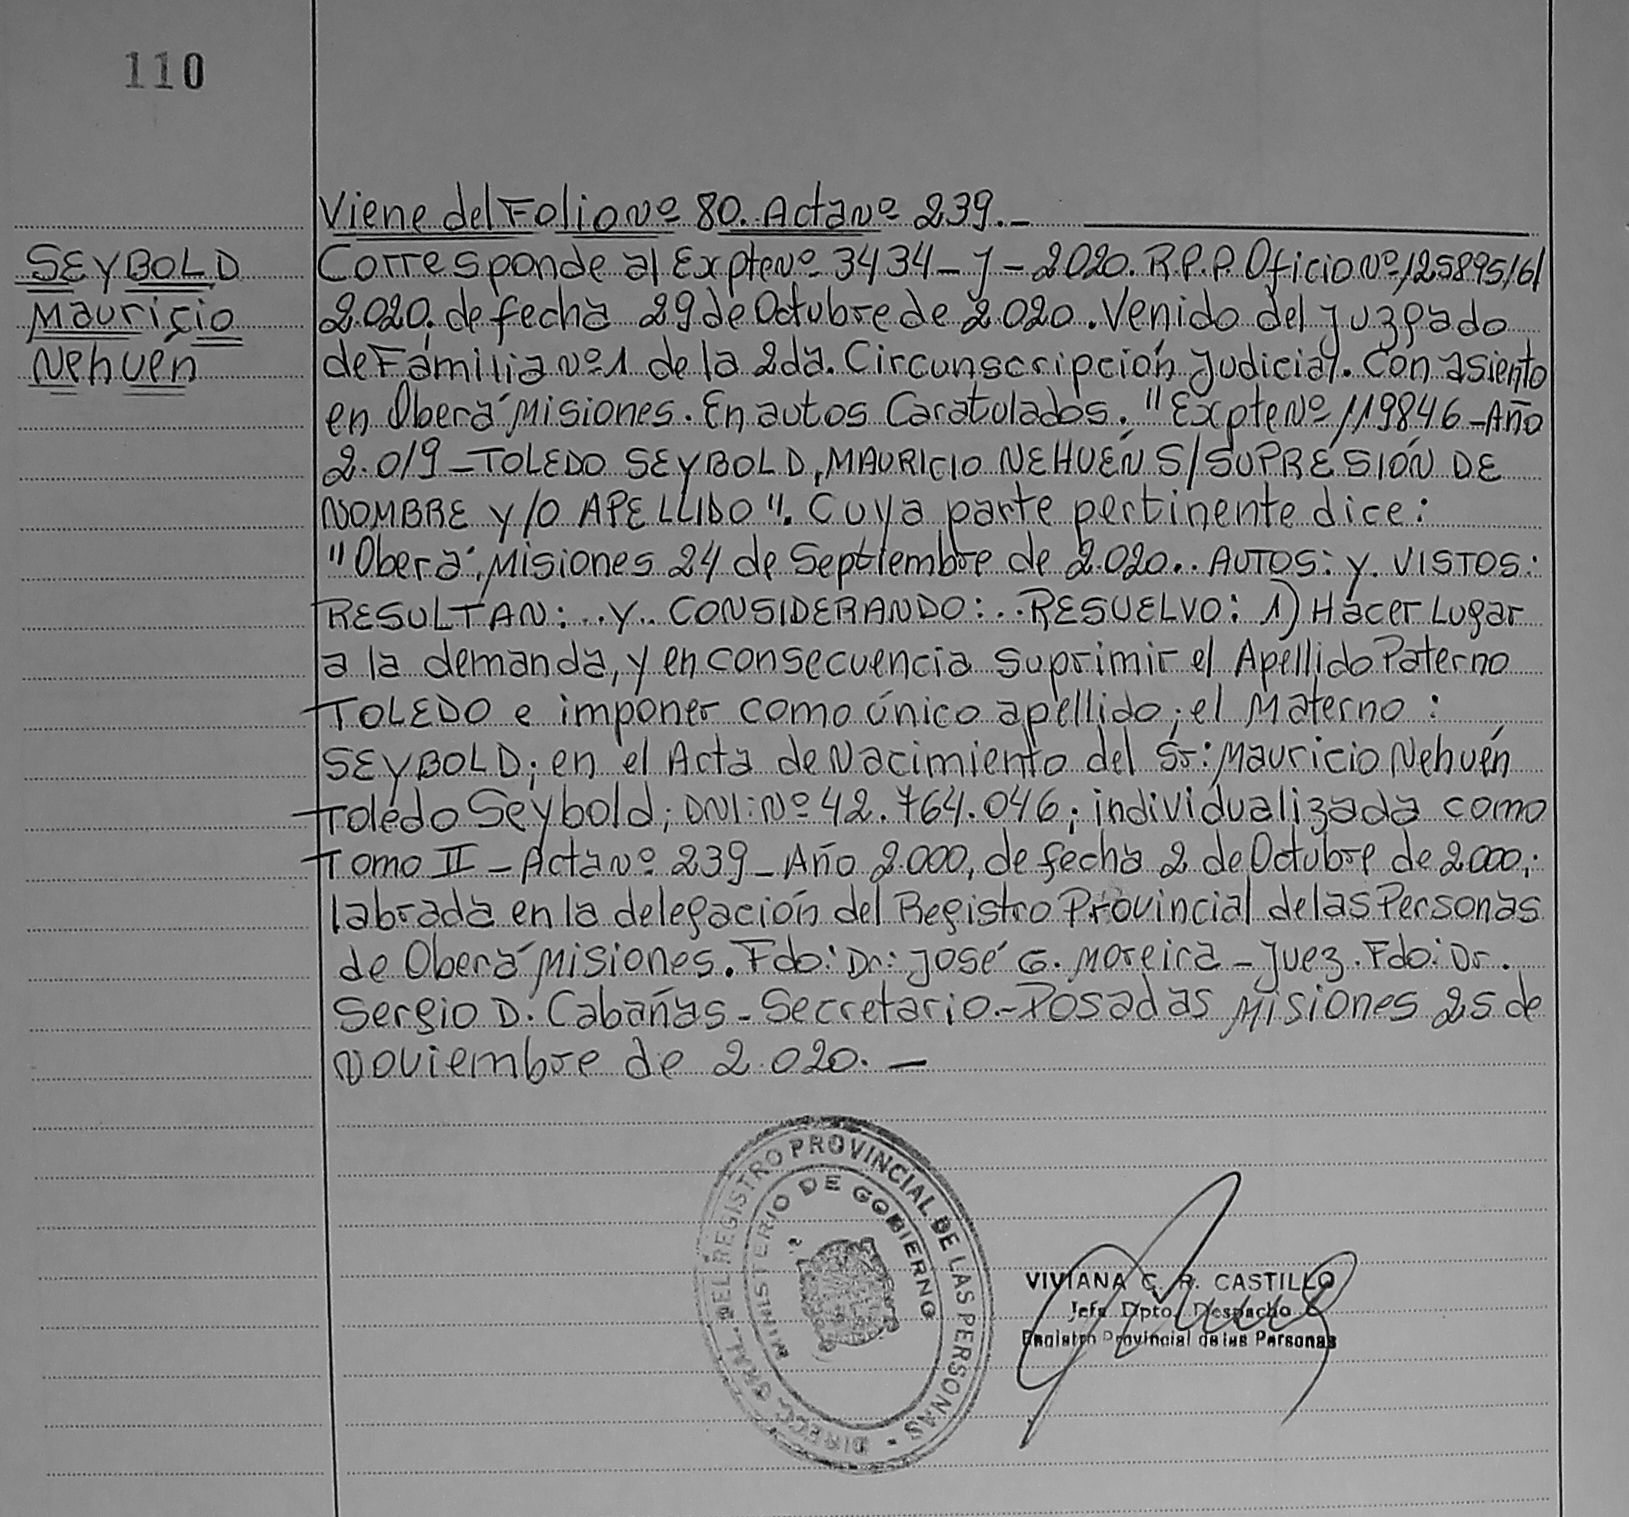 110
Viene del Folio Nº 80. Acta Nº 239.-
SEYBOLD
Mauricio
Nehuen
Corresponde al Expte Nº 3434-J-2020. R.P.P. Oficio Nº 125895/6/
2.020. de fecha 29 de Octubre de 2.020. Venido del Juzgado
de Familia Nº 1 de la 2da. Circunscripción Judicial. Con asiento
en Oberá Misiones. En autos Caratulados. "Expte Nº 119846-Año
2.019-TOLEDO SEYBOLD, MAURICIO NEHUÉN S/SUPRESIÓN DE
NOMBRE Y/O APELLIDO". Cuya parte pertinente dice:
"Oberá, Misiones 24 de Septiembre de 2.020.. AUTOS: Y. VISTOS:
RESULTAN:..Y.. CONSIDERANDO:..RESUELVO: 1) Hacer Lugar
a la demanda, y en consecuencia suprimir el Apellido Paterno
TOLEDO e imponer como único apellido; el Materno:
SEYBOLD; en el Acta de Nacimiento del Sr: Mauricio Nehuén
Toledo Seybold; DNI: Nº 42.764.046; individualizada como
Tomo II - Acta Nº 239 - Año 2.000, de fecha 2 de Octubre de 2000;
labrada en la delegación del Registro Provincial de las Personas
de Oberá Misiones. Fdo: Dr: José G. Moreira - Juez. Fdo: Dr.
Sergio D. Cabañas - Secretario.- Posadas Misiones 25 de
Noviembre de 2.020. -
DIRECC. GRAL. DEL REGISTRO PROVINCIAL DE LAS PERSONAS -
MINISTERIO DE GOBIERNO
VIVIANA G. R. CASTILLO
Jefa Dpto. Despacho
Registro Provincial de las Personas